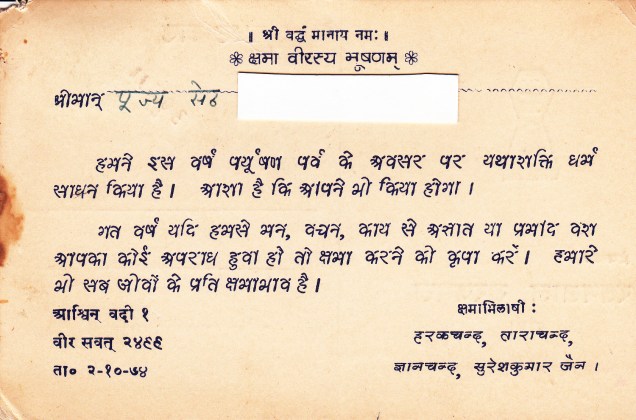 ॥ श्री वर्द्धमानाय नमः ॥
❋ क्षमा वीरस्य भूषणम् ❋
श्रीमान् पूज्य सेठ
हमने इस वर्ष पर्यूषण पर्व के अवसर पर यथाशक्ति धर्म
साधन किया है। आशा है कि आपने भी किया होगा।
गत वर्ष यदि हमसे मन, वचन, काय से अज्ञात या प्रमाद वश
आपका कोई अपराध हुवा हो तो क्षमा करने की कृपा करें। हमारे
भी सब जीवों के प्रति क्षमाभाव है।
आश्विन वदी १
वीर सवत् २४९९
ता० २-१०-७४
क्षमाभिलाषी :
हरकचन्द, ताराचन्द,
ज्ञानचन्द, सुरेशकुमार जैन।